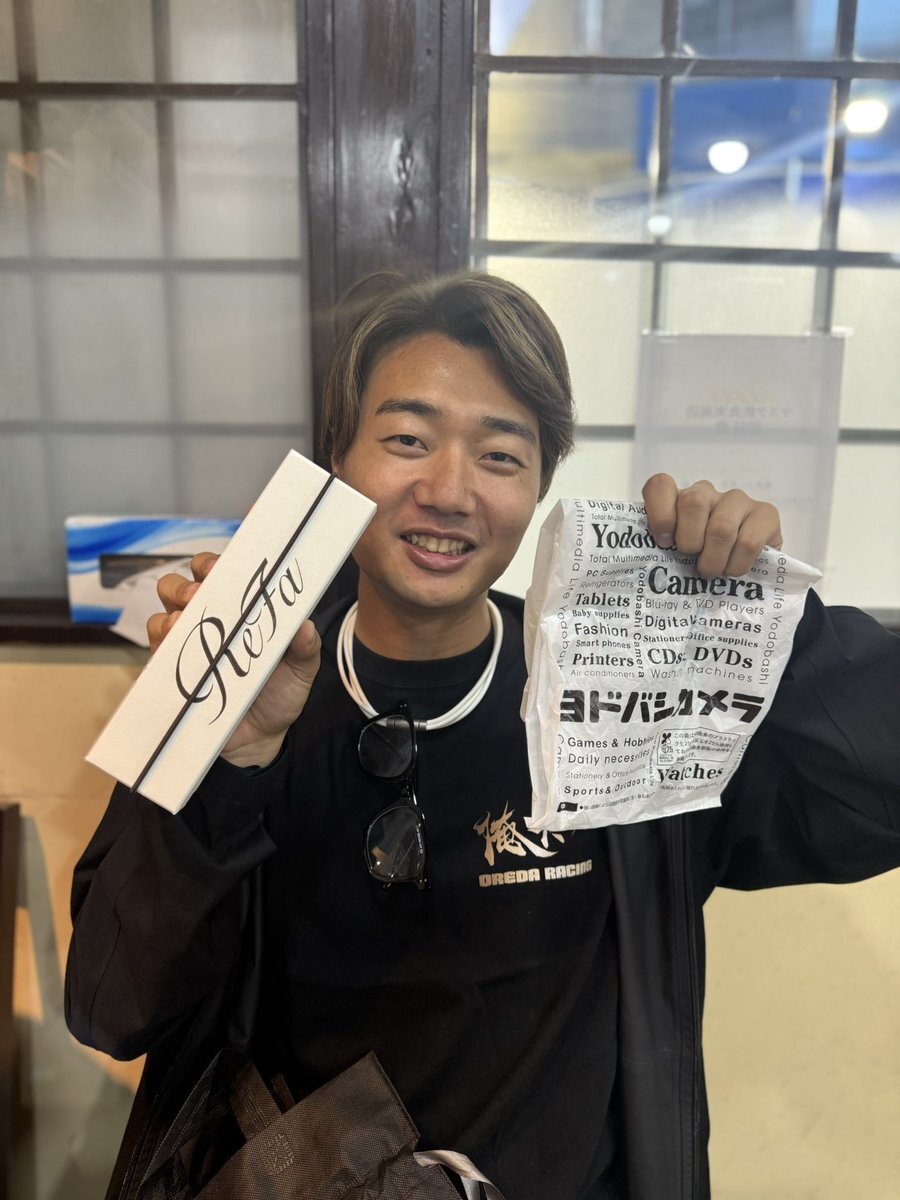 ReFa
Digital Aud
Total Multimedia Life Yodobashi
Yodobashi
Total Multimedia Life
PC Supplies
Refrigerators
Tablets
Baby supplies
Fashion
Smart phones
Printers
Air conditioners
Yodobashi Camera
Camera
Blu-ray & DVD Players
Digital Cameras
Stationery
Office supplies
CDs・DVDs
Washing machines
ヨドバシカメラ
Games & Hobbies
Daily necessities
Stationery & Office
Sports & Outdoor
Watches
俺だ
OREDA RACING
マスク飲食実施店